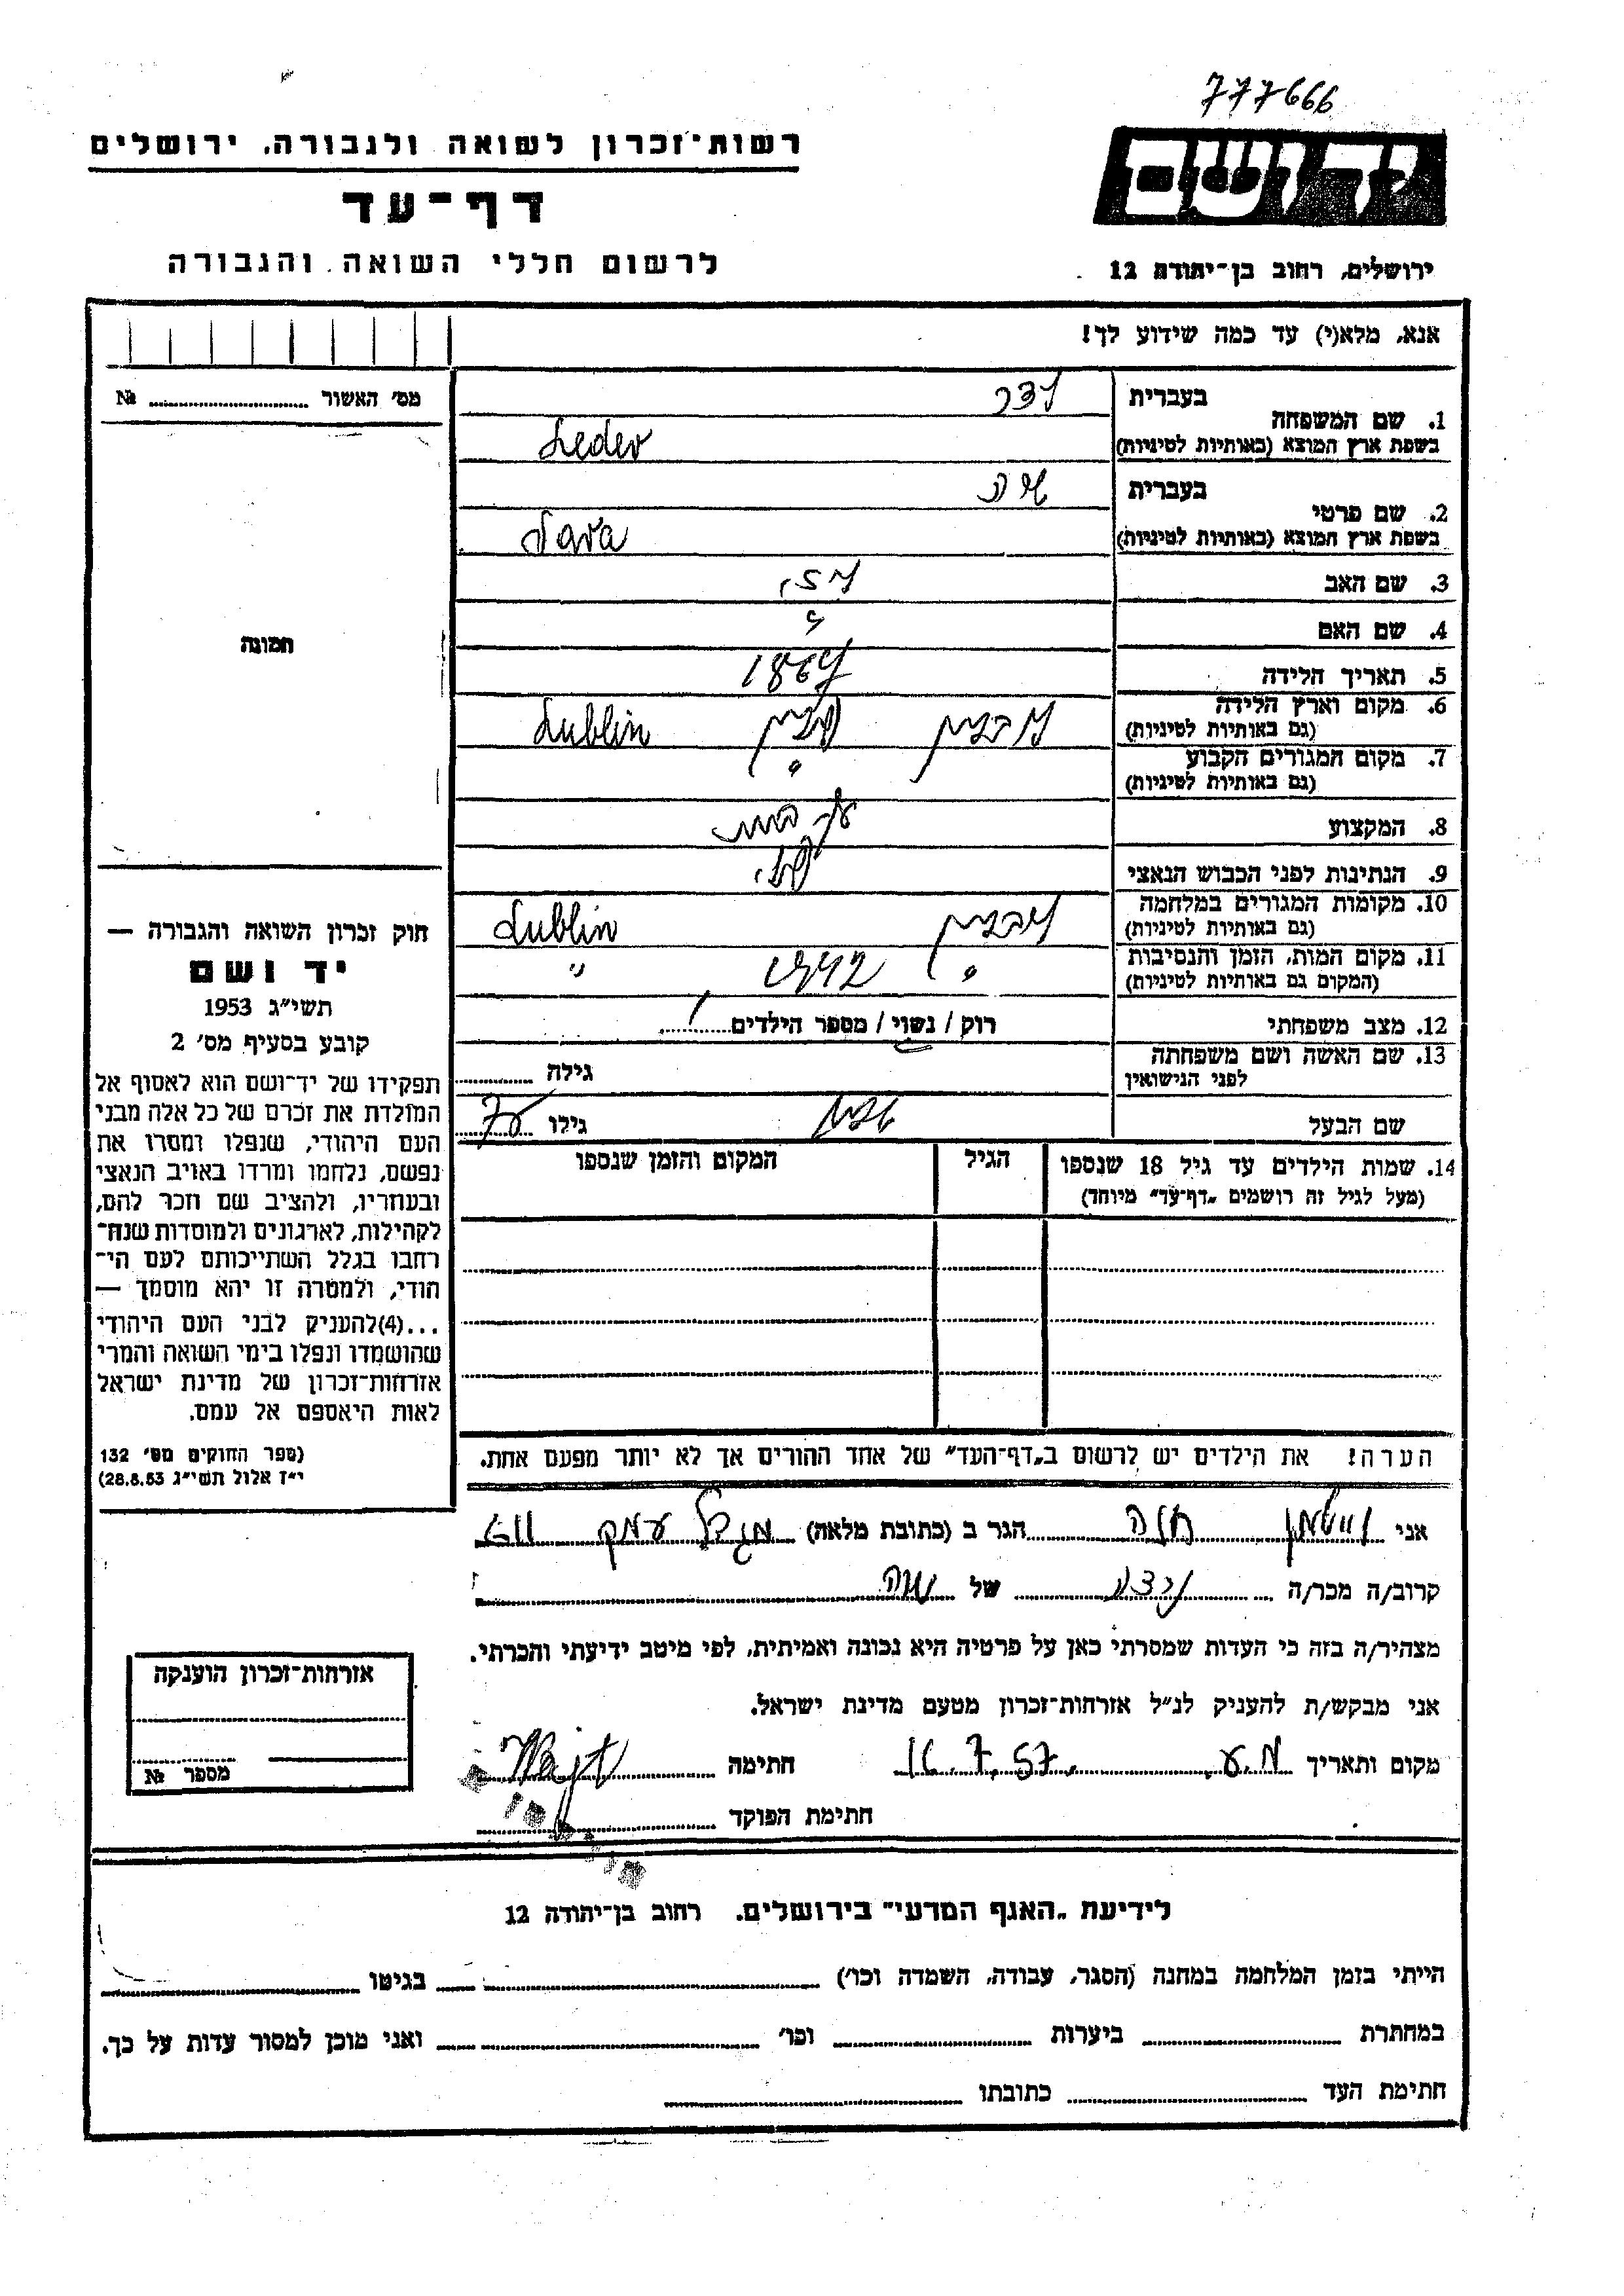 777666
יד ושם
רשות־זכרון לשואה ולגבורה, ירושלים
דף־עד
לרשום חללי השואה והגבורה
ירושלים, רחוב בן־יהודה 12
אנא, מלא(י) עד כמה שידוע לך!
מס׳ האשור № 
1. שם המשפחה בעברית לדר
בשפת ארץ המוצא (באותיות לטיניות) Leder
2. שם פרטי בעברית שרה
בשפת ארץ המוצא (באותיות לטיניות) Sara
3. שם האב
4. שם האם
5. תאריך הלידה 1867
6. מקום וארץ הלידה (גם באותיות לטיניות) לובלין פולין Lublin
7. מקום המגורים הקבוע (גם באותיות לטיניות) "
8. המקצוע עק. בית
9. הנתינות לפני הכבוש הנאצי פול.
10. מקומות המגורים במלחמה (גם באותיות לטיניות) לובלין Lublin
11. מקום המות, הזמן והנסיבות (המקום גם באותיות לטיניות) " 1942 "
12. מצב משפחתי רוק / נשוי / מספר הילדים
13. שם האשה ושם משפחתה לפני הנישואין גילה
שם הבעל גילו 75
14. שמות הילדים עד גיל 18 שנספו (מעל לגיל זה רושמים „דף־עד״ מיוחד) הגיל המקום והזמן שנספו
הערה! את הילדים יש לרשום ב„דף־העד״ של אחד ההורים אך לא יותר מפעם אחת.
תמונה
חוק זכרון השואה והגבורה —
יד ושם
תשי״ג 1953
קובע בסעיף מס׳ 2
תפקידו של יד־ושם הוא לאסוף אל
המולדת את זכרם של כל אלה מבני
העם היהודי, שנפלו ומסרו את
נפשם, נלחמו ומרדו באויב הנאצי
ובעוזריו, ולהציב שם וזכר להם,
לקהילות, לארגונים ולמוסדות שנח־
רבו בגלל השתייכותם לעם הי־
הודי, ולמטרה זו יהא מוסמך —
...(4) להעניק לבני העם היהודי
שהושמדו ונפלו בימי השואה והמרי
אזרחות־זכרון של מדינת ישראל
לאות היאספם אל עמם.
(ספר החוקים מס׳ 132
י״ז אלול תשי״ג 28.8.53)
אני ויטמן חנה הגר ב (כתובת מלאה) מגדל עמק
קרוב/ה מכר/ה נכדה של שרה
מצהיר/ה בזה כי העדות שמסרתי כאן על פרטיה היא נכונה ואמיתית, לפי מיטב ידיעתי והכרתי.
אני מבקש/ת להעניק לנ״ל אזרחות־זכרון מטעם מדינת ישראל.
מקום ותאריך מ.ע. 16.7.57. חתימה
חתימת הפוקד
אזרחות־זכרון הוענקה
מספר №
לידיעת „האגף המדעי״ בירושלים, רחוב בן־יהודה 12
הייתי בזמן המלחמה במחנה (הסגר, עבודה, השמדה וכו׳) בגיטו
במחתרת ביערות וכו׳ ואני מוכן למסור עדות על כך.
חתימת העד כתובתו